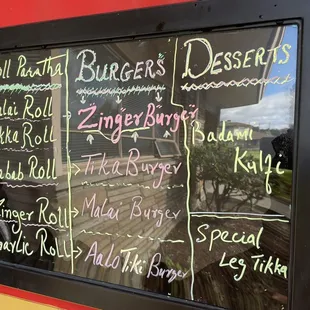 Roll Paratha
Malai Roll
Roll
Roll
Zinger Roll
Garlic Roll
BURGERS
Zinger Burger
Tika Burger
Malai Burger
Aalo Tiki Burger
DESSERTS
Badami
Kulfi
Special
Leg Tikka